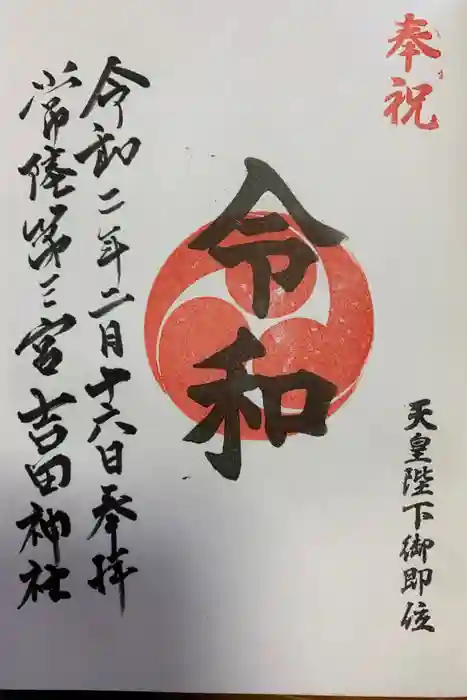 奉祝
天皇陛下御即位
令和
令和二年二月十六日奉拝
常陸第三宮吉田神社